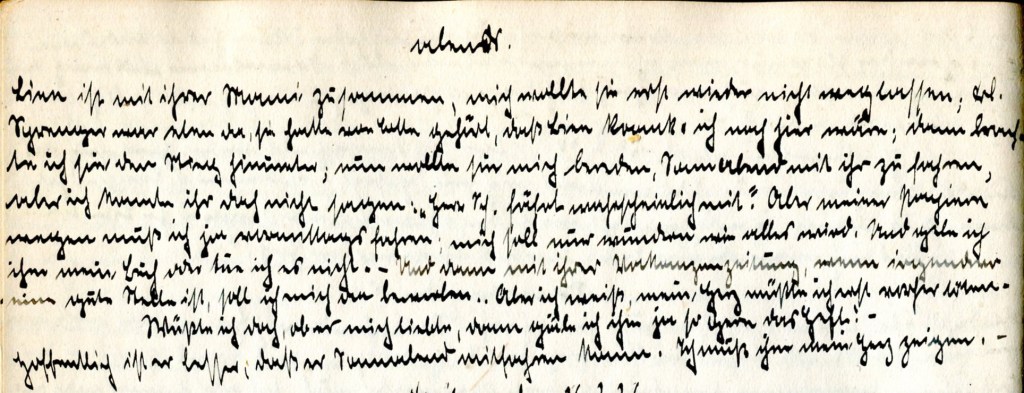 abends.
Lien ist mit ihrer Mami zusammen, mich wollte sie erst wieder nicht weglassen; Frl.
Sprenger war eben da, sie hatte von gehört, daß Lien krank u. ich noch hier wäre; dann brach-
te ich sie den Stieg hinunter; nun wollte sie mich bereden, Sonnabend mit ihr zu fahren,
aber ich konnte ihr doch nicht sagen: „Herr Sch. fährt wahrscheinlich mit". Aber meiner
wegen muß ich ja vormittags fahren; mich soll nur wundern wie alles wird. Und gebe ich
ihm mein Buch oder tue ich es nicht. – Und dann mit ihrer Vakanzenzeitung, wenn irgendwo
eine gute Stelle ist, soll ich mich da bewerben.. Aber ich weiß, mein Herz müßte ich erst vorher töten –
Wüßte ich doch, ob er mich liebte, dann gäbe ich ihm ja so gern das Heft! –
Hoffentlich ist er besser, daß er Sonnabend mitfahren kann. Ich muß ihm mein Herz zeigen. –